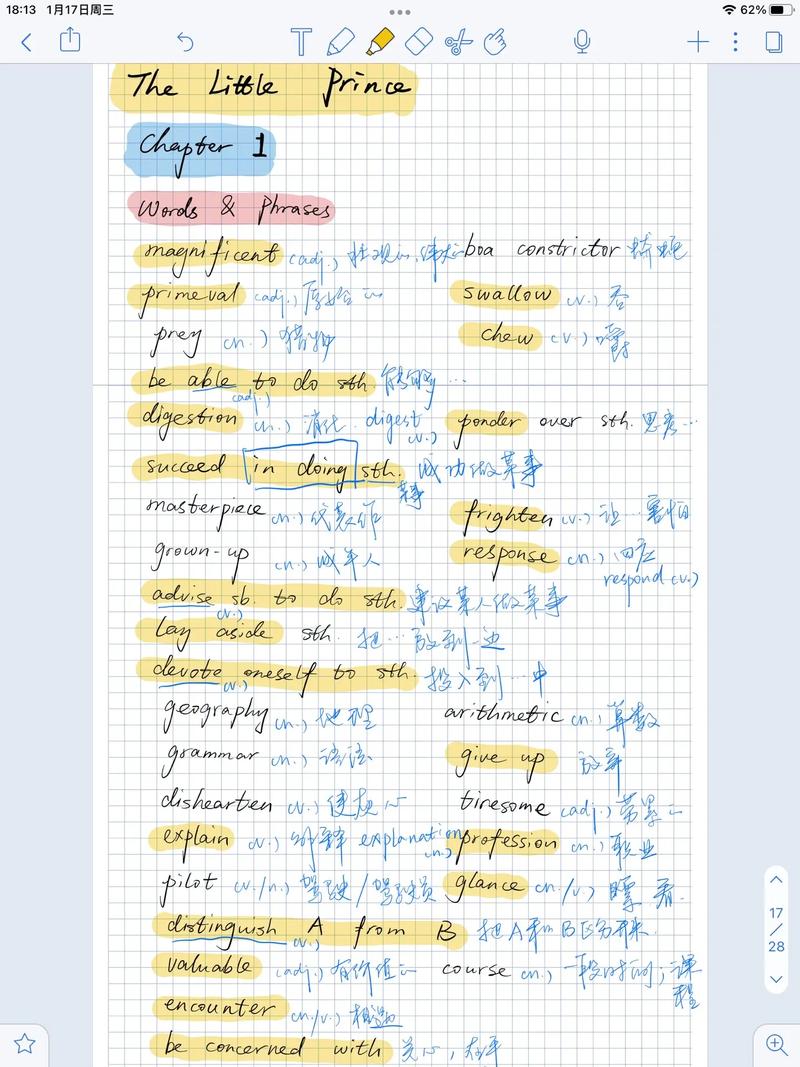 18:13 1月17日周三
62%
The Little Prince
Chapter 1
Words & Phrases
magnificent (adj.) 壮观的，伟大的 boa constrictor 蟒蛇
primeval (adj.) 原始的 swallow (v.) 吞
prey (n.) 猎物 chew (v.) 嚼
be able to do sth. 能够做…
(adj.)
digestion (n.) 消化 digest ponder over sth. 思考…
(v.)
succeed in doing sth. 成功做某事
某事
masterpiece (n.) 代表作 frighten (v.) 让…害怕
grown-up (n.) 成年人 response (n.) 回应
respond (v.)
advise sb. to do sth. 建议某人做某事
(v.)
lay aside sth. 把…放到一边
devote oneself to sth. 投入到…中
(v.)
geography (n.) 地理 arithmetic (n.) 算数
grammar (n.) 语法 give up 放弃
dishearten (v.) 使灰心 tiresome (adj.) 劳累的
explain (v.) 解释 explanation profession (n.) 职业
(n.)
pilot (v./n.) 驾驶/驾驶员 glance (n./v.) 瞥 看
distinguish A from B 把A和B区分开来
(v.)
valuable (adj.) 有价值的 course (n.) 一段时间；课程
encounter (n./v.) 相遇
be concerned with 关心，在乎
17
/
28